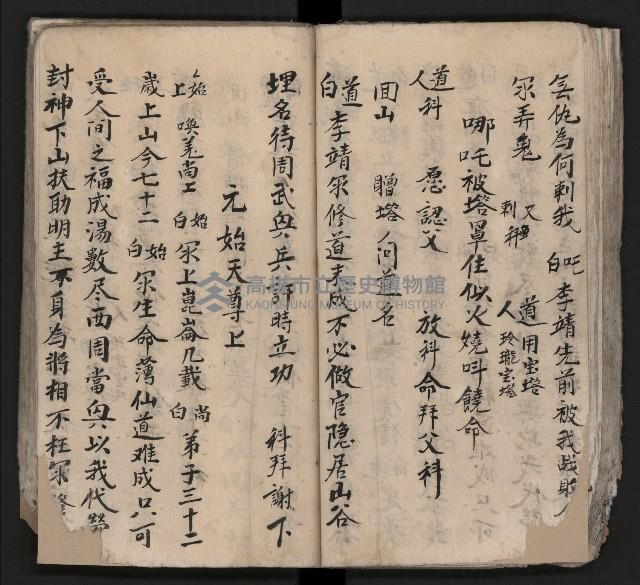 無仇為何刺我 吒白 李靖先前被我战敗
尔弄鬼 又刺科 道人用宝塔 玲瓏宝塔
哪吒被塔罩住似火燒呌饒命
道人科 愿認父 放科命拜父科
回山 贈塔人问道名
道白 李靖尔修道未成不必做官隐居山谷
埋名待周武兴兵許時立功 科拜謝下
元始天尊上
始上 喚姜尚上 始白 尔上崑崙几載 尚白 弟子三十二
歲上山今七十二 始白 尔生命薄仙道难成只可
受人间之福成湯數尽西周當兴以我代勞
封神下山扶助明主 身為將相不枉尔
高雄市立歷史博物館
KAOHSIUNG MUSEUM OF HISTORY